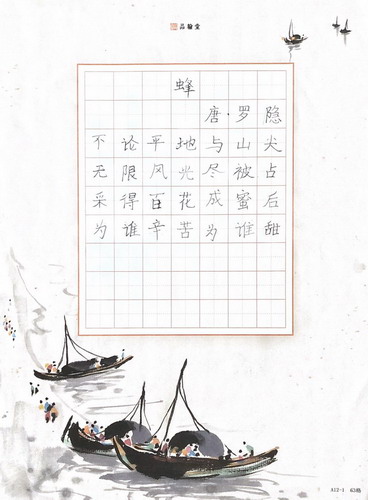 品翰堂
蜂
唐·罗隐
不论平地与山尖
无限风光尽被占
采得百花成蜜后
为谁辛苦为谁甜
A12-1 63格